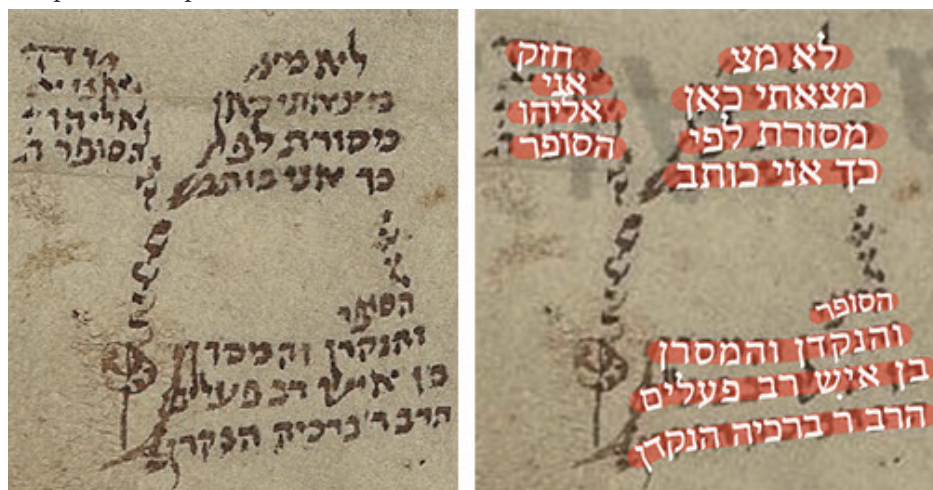 לא מצ
מצאתי כאן
מסורת לפי
כך אני כותב
חזק
אני
אליהו
הסופר
הסופר
והנקדן והמסרן
בן איש רב פעלים
הרב ר ברכיה הנקדן
מצאתי כאן
מסורת
כך אני כותב
אליהו
הסופר ה
הסופר
והנקדן והמסרן
בן איש רב פעלים
הרב ר ברכיה הנקדן